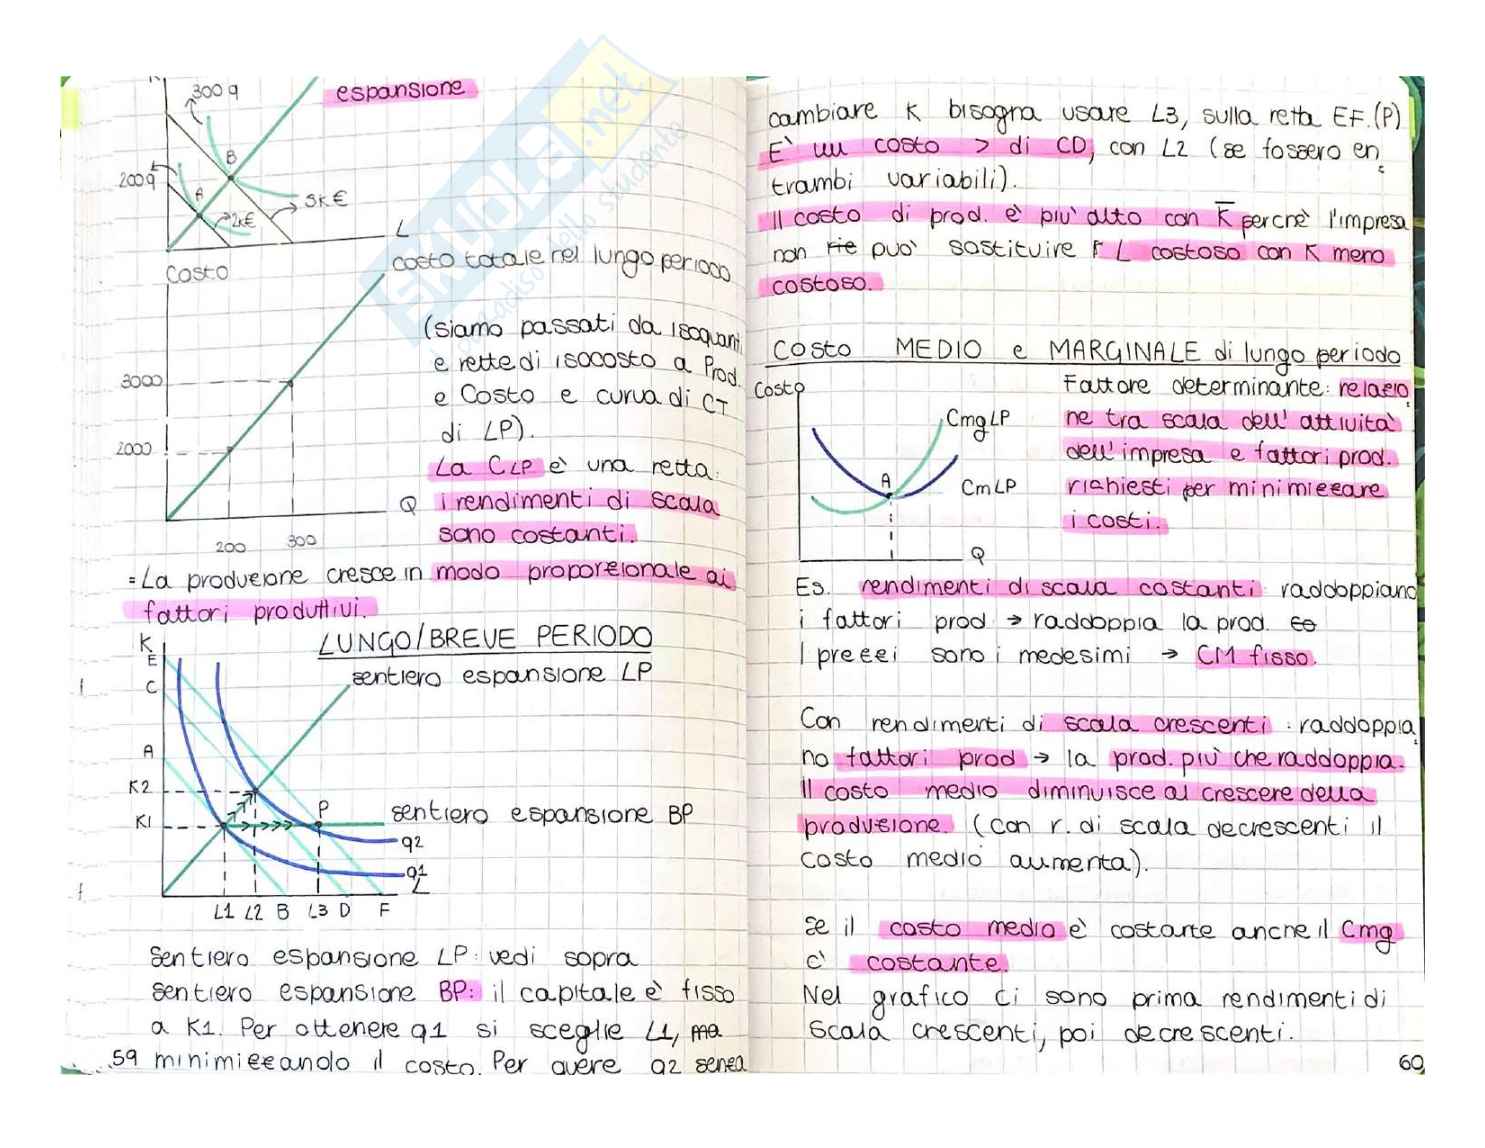 300 q
espansione
B
200 q
A
3k €
2k€
L
Costo
costo totale nel lungo periodo
(siamo passati da isoquanti
e rette di isocosto a Prod.
3000
e Costo e curva di CT
di LP).
2000
La CLP è una retta:
i rendimenti di scala
Q
sono costanti.
200 300
= La produzione cresce in modo proporzionale ai
fattori produttivi.
K
LUNGO/BREVE PERIODO
E
sentiero espansione LP
C
A
K2
P
K1
sentiero espansione BP
q2
q1
L
L1 L2 B L3 D F
Sentiero espansione LP: vedi sopra
sentiero espansione BP: il capitale è fisso
a K1. Per ottenere q1 si sceglie L1, ma
59 minimizzando il costo. Per avere q2 senza
cambiare K bisogna usare L3, sulla retta EF.(P)
E' un costo > di CD, con L2 (se fossero en,
trambi variabili).
Il costo di prod. è piu' alto con K̅ perchè l'impresa
non rie puo' sostituire L costoso con K meno
costoso.
Costo MEDIO e MARGINALE di lungo periodo
Costo
Fattore determinante: relazio,
CmgLP
ne tra scala dell'attivita'
dell'impresa e fattori prod.
A
CmLP
richiesti per minimizzare
i costi.
Q
Es. rendimenti di scala costanti: raddoppiano
i fattori prod → raddoppia la prod. co
I prezzi sono i medesimi → CM fisso.
Con rendimenti di scala crescenti: raddoppia,
no fattori prod → la prod. piu' che raddoppia.
Il costo medio diminuisce al crescere della
produzione. (Con r. di scala decrescenti il
costo medio aumenta).
Se il costo medio è costante anche il Cmg
c' costante.
Nel grafico ci sono prima rendimenti di
Scala crescenti, poi decrescenti.
60
SKUOLA.net
dello studente